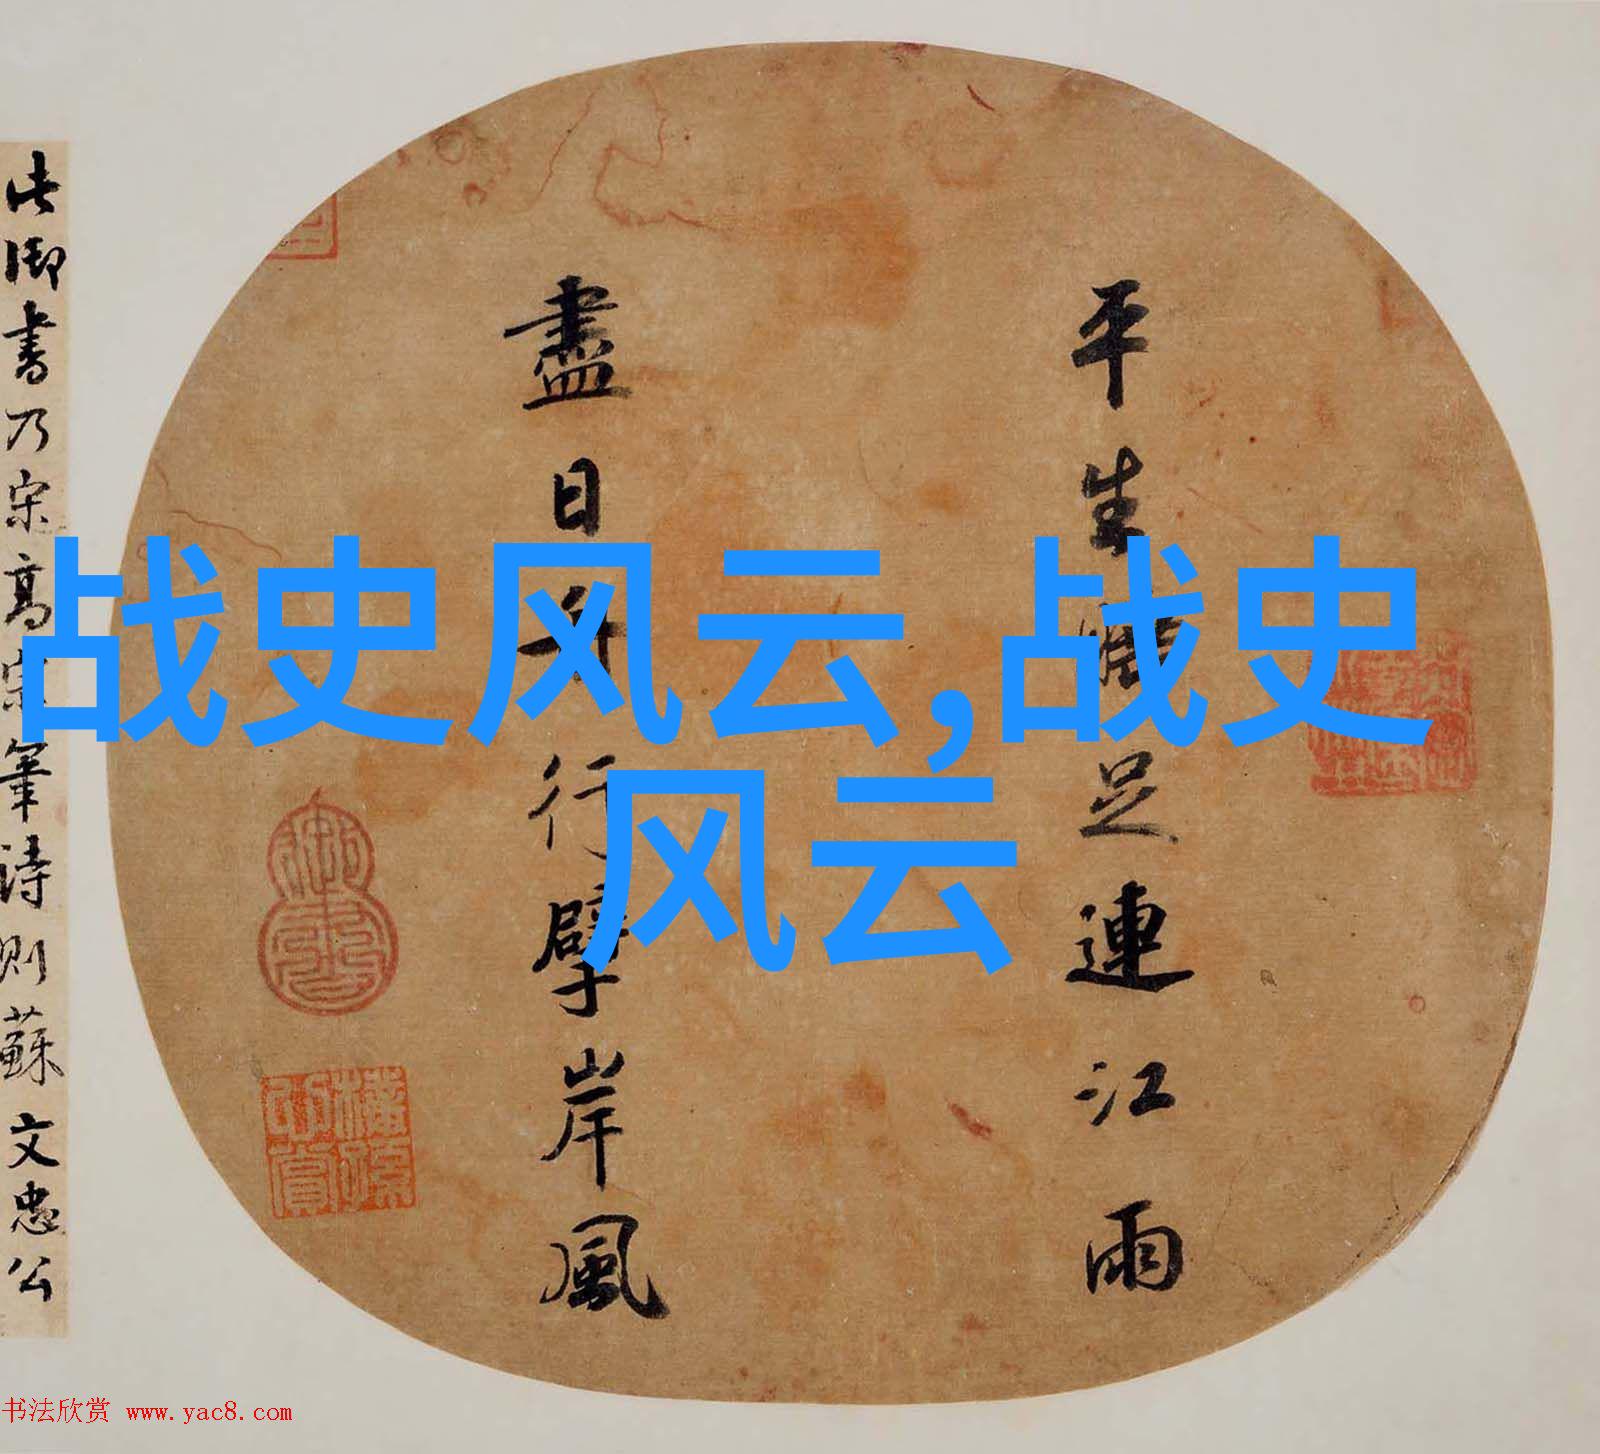 战史风云,战史
风云
平生睡足連江雨
盡日舟行擘岸風
此御書乃宋高宗筆詩則蘇文忠公
御書
書法欣赏 www.yac8.com